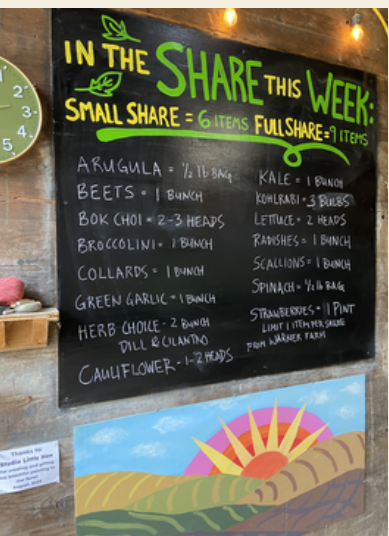 IN THE SHARE THIS WEEK:
SMALL SHARE = 6 ITEMS FULL SHARE = 9 ITEMS
ARUGULA = 1/2 lb BAG
BEETS = 1 BUNCH
BOK CHOI = 2-3 HEADS
BROCCOLINI = 1 BUNCH
COLLARDS = 1 BUNCH
GREEN GARLIC = 1 BUNCH
HERB CHOICE - 2 BUNCH
DILL & CILANTRO
CAULIFLOWER - 1-2 HEADS
KALE = 1 BUNCH
KOHLRABI = 3 BULBS
LETTUCE = 2 HEADS
RADISHES = 1 BUNCH
SCALLIONS = 1 BUNCH
SPINACH = 1/2 lb BAG
STRAWBERRIES = 1 PINT
LIMIT 1 ITEM PER SHARE
FROM WARNER FARM
2
3
4
5
Thanks to:
Studio Little Hen
for creating and gifting
the beautiful painting to
our farm!
August 2023